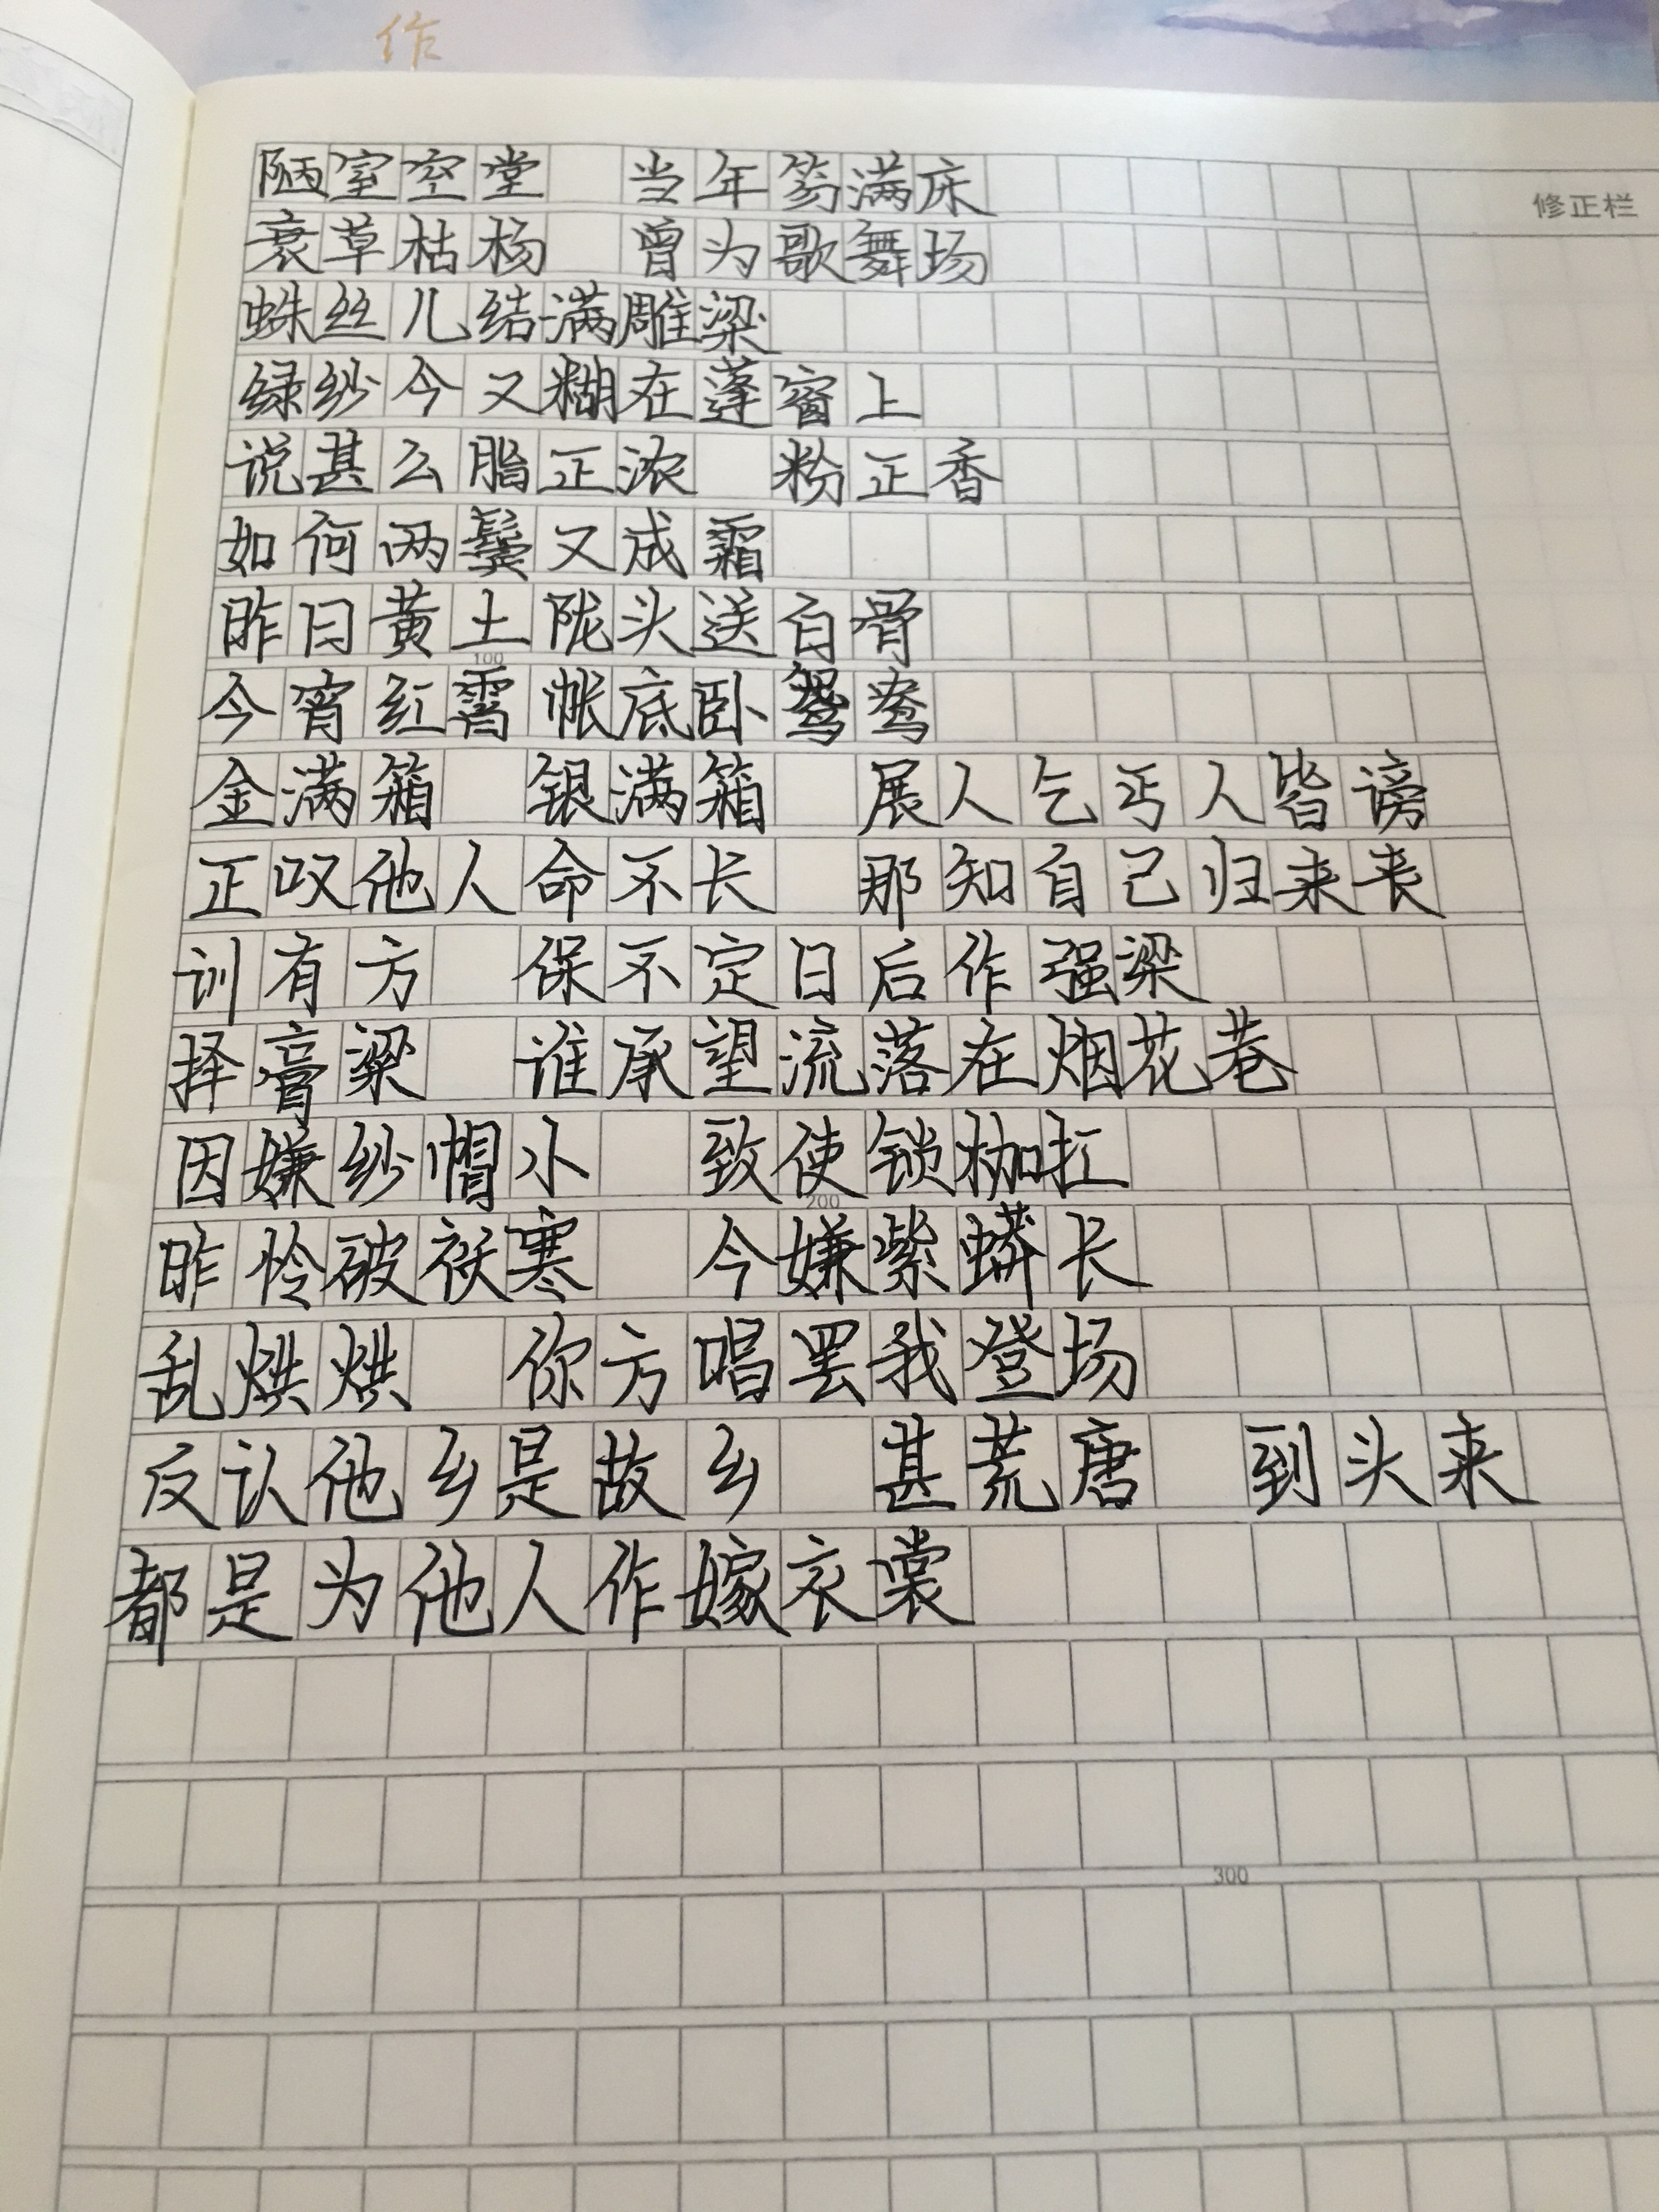 作
修正栏
陋室空堂 当年笏满床
衰草枯杨 曾为歌舞场
蛛丝儿结满雕梁
绿纱今又糊在蓬窗上
说甚么脂正浓 粉正香
如何两鬓又成霜
昨日黄土陇头送白骨
100
今宵红霄帐底卧鸳鸯
金满箱 银满箱 展人乞丐人皆谤
正叹他人命不长 那知自己归来丧
训有方 保不定日后作强梁
择膏粱 谁承望流落在烟花巷
因嫌纱帽小 致使锁枷扛
200
昨怜破袄寒 今嫌紫蟒长
乱烘烘 你方唱罢我登场
反认他乡是故乡 甚荒唐 到头来
都是为他人作嫁衣裳
300